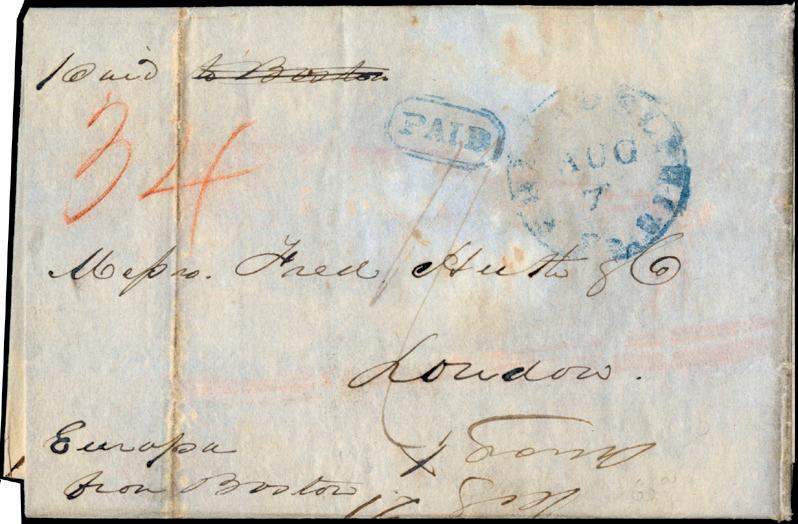 Paid to Boston
34
PAID
PHILADELPHIA
AUG
7
Messrs. Fred. Huth & Co
London.
Europa
from Boston